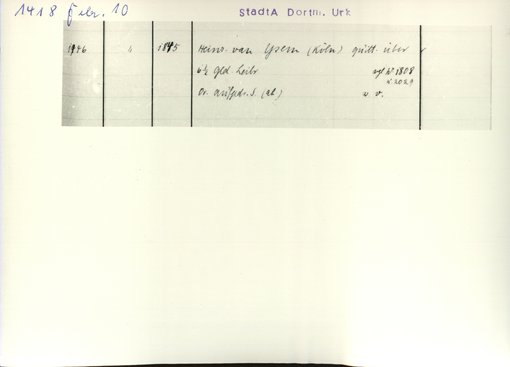 1418 Febr. 10
StadtA Dortm. Urk
1976 " 1875 Heinr. van Ysem (Köln) quitt. über
6½ Gld. Leibr vgl N 1808
Or. aufgedr. S. (ab)